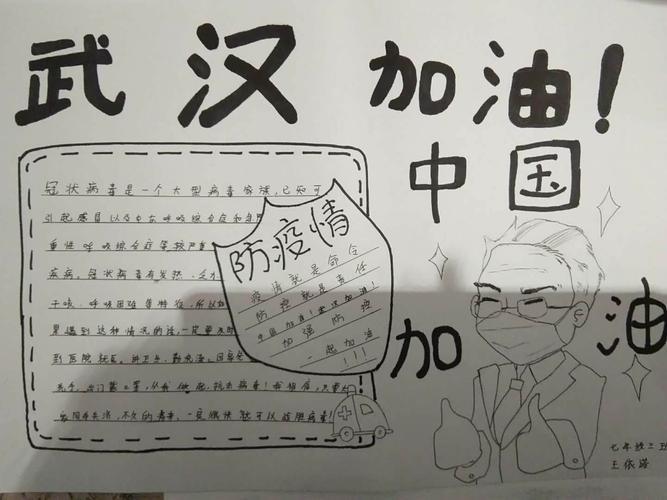 武汉加油!
中国
加油
冠状病毒是一个大型病毒家族,已知可
引起感冒以及中东呼吸综合症和
重性呼吸综合症等较严重
疾病。冠状病毒有发热、乏力
干咳、呼吸困难等特征,所以如
果遇到这种情况的话,一定要及时
到医院就医。讲卫生,勤洗澡,回家
洗手,出门戴口罩,从我做起,抗击病毒!我相信,只要
同舟共济,不久的将来,一定很快就可以战胜病毒!
防疫情
疫情就是命令
防控就是责任
中国加油!武汉加油!
加强防控
一起加油
!!!
七年级三班
王依诺